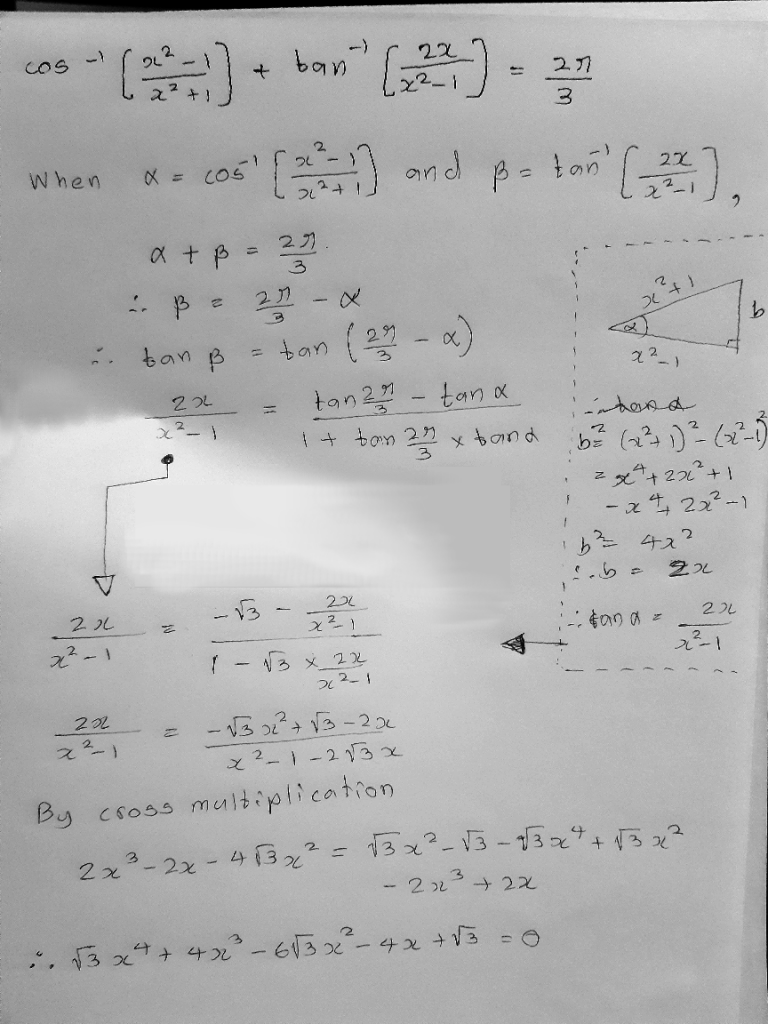 cos⁻¹ [(x² – 1)/(x² + 1)] + tan⁻¹ [2x/(x² – 1)] = 2π/3
When α = cos⁻¹ [(x² – 1)/(x² + 1)] and β = tan⁻¹ [2x/(x² – 1)],
α + β = 2π/3.
∴ β = 2π/3 – α
∴ tan β = tan (2π/3 – α)
2x/(x² – 1) = (tan 2π/3 – tan α)/(1 + tan 2π/3 × tan α)
x² + 1
b
α
x² – 1
∴ tan α
b² = (x² + 1)² – (x² – 1)²
= x⁴ + 2x² + 1
– x⁴ + 2x² – 1
b² = 4x²
∴ b = 2x
∴ tan α = 2x/(x² – 1)
2x/(x² – 1) = (–√3 – 2x/(x² – 1))/(1 – √3 × 2x/(x² – 1))
2x/(x² – 1) = (–√3x² + √3 – 2x)/(x² – 1 – 2√3x)
By cross multiplication
2x³ – 2x – 4√3x² = √3x² – √3 – √3x⁴ + √3x²
– 2x³ + 2x
∴ √3x⁴ + 4x³ – 6√3x² – 4x + √3 = 0